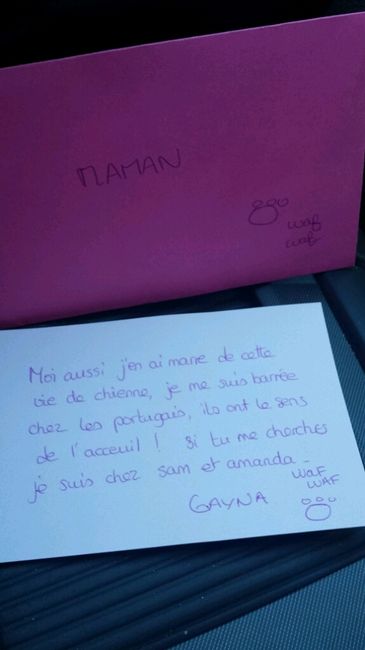 MAMAN
waf
waf
Moi aussi j'en ai marre de cette
vie de chienne, je me suis barrée
chez les portugais, ils ont le sens
de l'acceuil ! Si tu me cherches
je suis chez sam et amanda.
waf
WAF
GAYNA